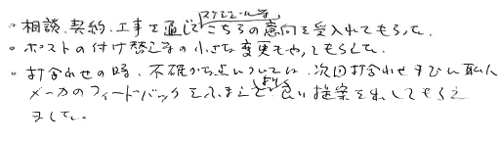 スケジュール等
・相談、契約、工事を通じて こちらの意向を受入れてもらった。
・ポストの付け替え等の小さな変更もやってもらえた。
・打合わせの時、不確かな点については、次回打合わせまでに職人
メーカのフィードバックをふまえて より 良い提案を出してもらえ
ました。